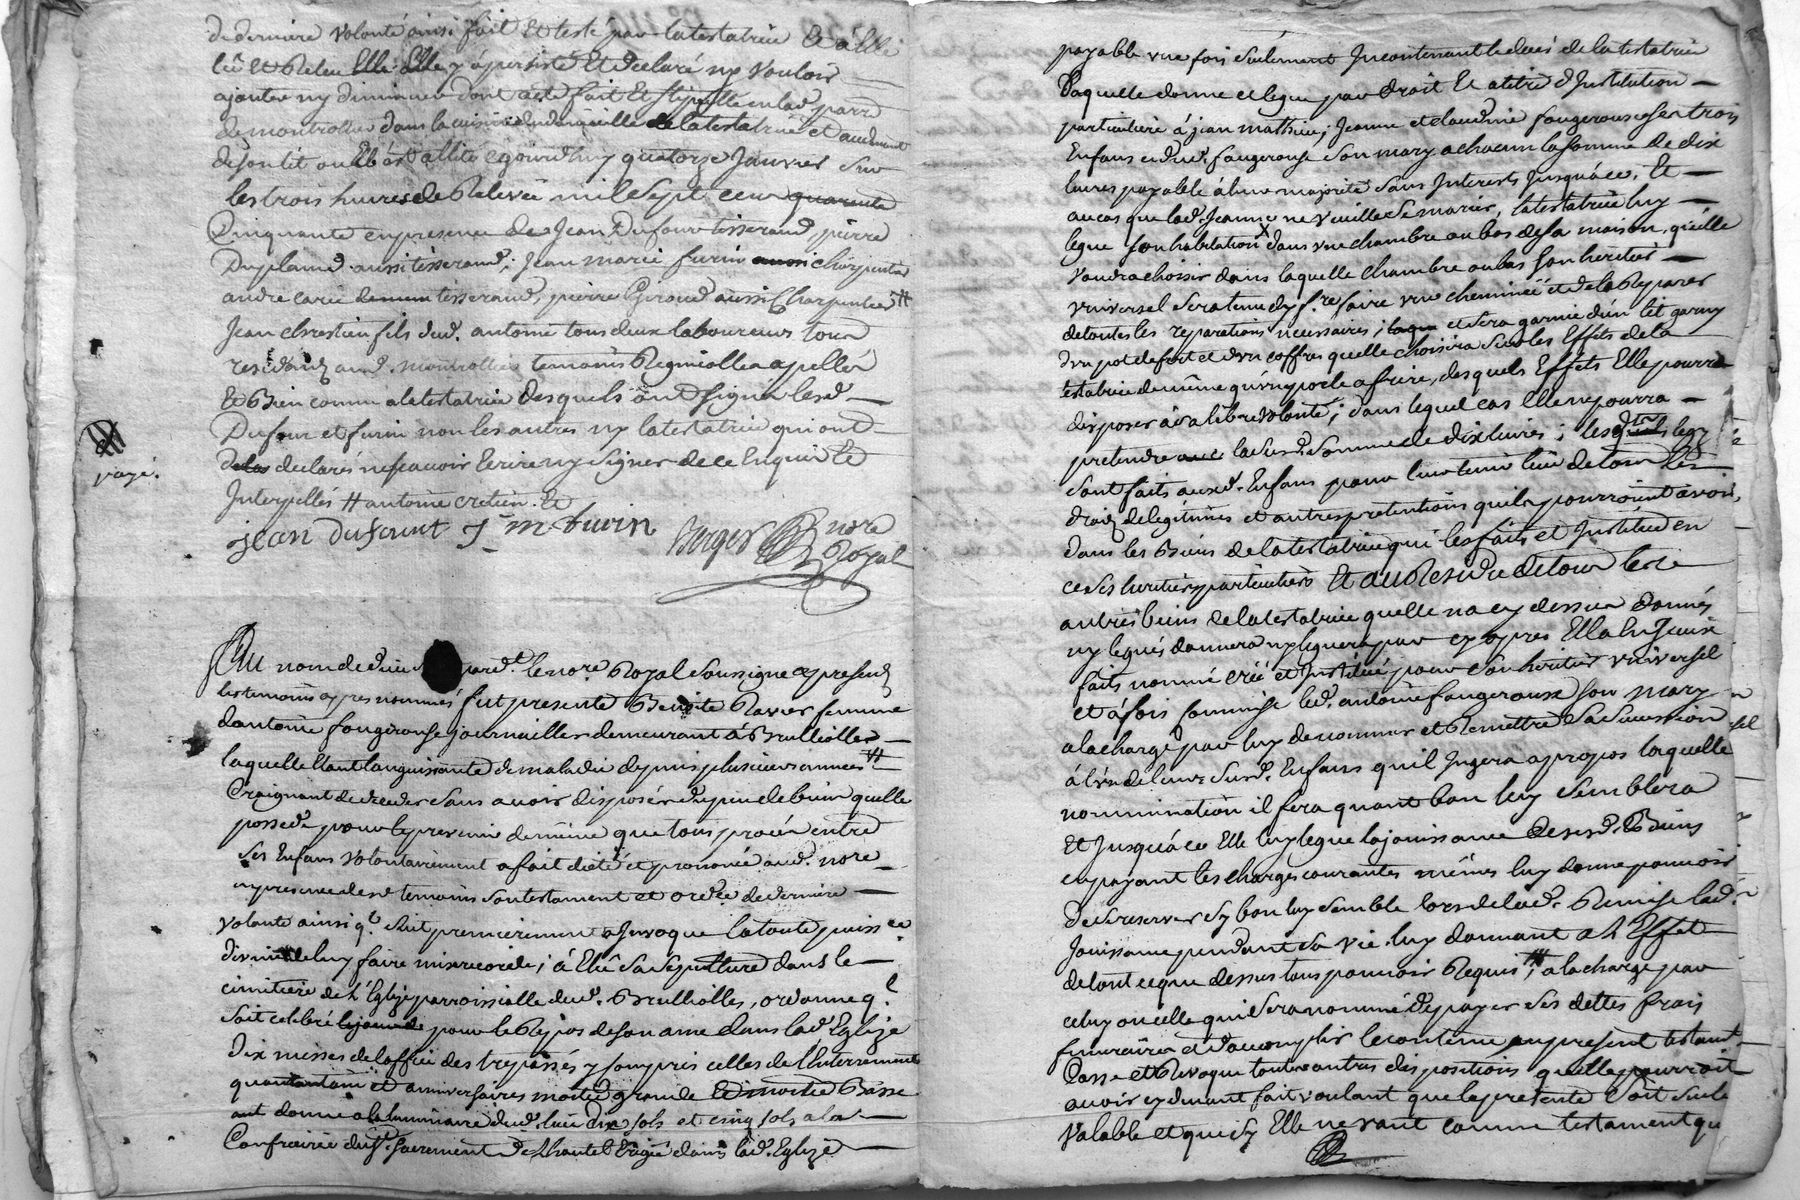 de derniere volonté ainsi fait et testé par la testatrice et a elle
lû et relu elle y a persisté et declaré ny vouloir
ajouter ny diminuer dont acte fait et stipullé en lad. parr.
de montrottier dans la cuisine du domicille de la testatrice et au devant
de son lit ou elle est allitée ce jourd'huy quatorze Janvier sur
les trois heures de Relevée mil sept cent quarente
Cinquante en presence de Jean Dufour tisserand, pierre
Dupland aussi tisserand, Jean marie furin charpentier
andre carié tisserand, pierre Giroud aussi Charpentier #
Jean chrestien fils dud. antoine tous deux laboureurs tous
residants aud. montrottier temoins Requis et appellés
Et Bien connu a la testatrice desquels ont signé lesd.
Dufour et furin non les autres ny la testatrice qui ont
declarés ne sçavoir Ecrire ny signer de ce Enquis et
Interpellés # antoine cretien. et
jean dufour J m furin Berger nore Royal
payé.
Au nom de dieu pard. le nore Royal soussigné et presents
les temoins apres nommés fut presente Benoite Ravier femme
dantoine fougerouse journallier demeurant à Brulliolles
laquelle Etant languissante de maladie depuis plusieurs années #
Craignant de deceder sans avoir disposer du peu de bien quelle
possede pour le prevenir de même que tous procés entre
ses Enfans volontairement a fait dicté et prononcé aud. nore
en presence desd. temoins son testament et ordce de derniere
volonté ainsi q. suit premierement a Invoqué la toute puissce
divine de luy faire misericorde; à Elû sa sepulture dans le
cimitiere de l'Eglize parroissialle dud. Brulliolles, ordonne q.
soit celebré le jour de pour le Repos de son ame dans lad. Eglize
Dix messes de l'office des trepassés y compris celles de l'Enterrement
quarantaine et anniversaires moitié grande Et moitié Basse
ont donne a la luminaire dud. lieu dix sols et cinq sols a la
Confrairie du St. Sacrement de l'hautel Erigée dans lad. Eglize
payable une fois seulement Incontinant le decés de la testatrice
Laquelle donne et legue par droit Et a titre d'Institution
particuliere à jean mathieu, Jeanne et claudine fougerouse ses trois
Enfans et dud. fougerouse son mary a chacun la somme de dix
livres payable à leur majorité sans Interests Jusqu'à ce, Et
au cas que lad. Jeanne ne veuille se marier, la testatrice luy
legue son habitation dans une chambre au bas de sa maison, qu'elle
voudra choisir dans laquelle chambre au bas son heritier
universel sera tenu dy fre faire une cheminée et de la Reparer
de toutes les reparations necessaires; et sera garnie d'un lit garny
d'un pot de fert et d'un coffre quelle choisira sur les Effets de la
testatrice de même qu'une poele a frire, desquels Effets Elle pourra
disposer à sa libre volonté; dans lequel cas Elle ne pourra
pretendre la susd. somme de dix livres; lesquels legs
sont faits auxd. Enfans pour leur tenir lieu de tous les
droits de legitimes et autres pretentions qu'ils pourroient avoir
dans les Biens de la testatrice qui les fait et Institue en
ce ses heritiers particuliers Et au Residu de tous les
autres biens de la testatrice quelle na cy dessus donnés
ny legués donnera ny leguera par cy apres Elle la Juix
faits nommé créé et Institué pour son heritier universel
et à fois commise led. antoine fougerouse son mary
a la charge par luy de nommer et Remettre sa succession
à l'un de leurs susd. Enfans quil Jugera a propos laquelle
nommination il fera quant bon luy semblera
Et Jusquà ce Elle luy legue la jouissance desesd. Biens
en payant les charges courantes mêmes luy donne pouvoir
de se reserver sy bon luy semble lors de lad. Remise lad.
Jouissance pendant sa vie luy donnant a l'Effet
de tout ce que dessus tous pouvoir Requis; a la charge par
celuy ou celle qui sera nommé de payer ses dettes frais
funeraires et d'accomplir le contenu au present testamt.
Casse et Revoque toutes autres dispositions quelle pourroit
avoir cy devant fait voulant que le present soit seule
Valable et que sy Elle ne vaut comme testament qu